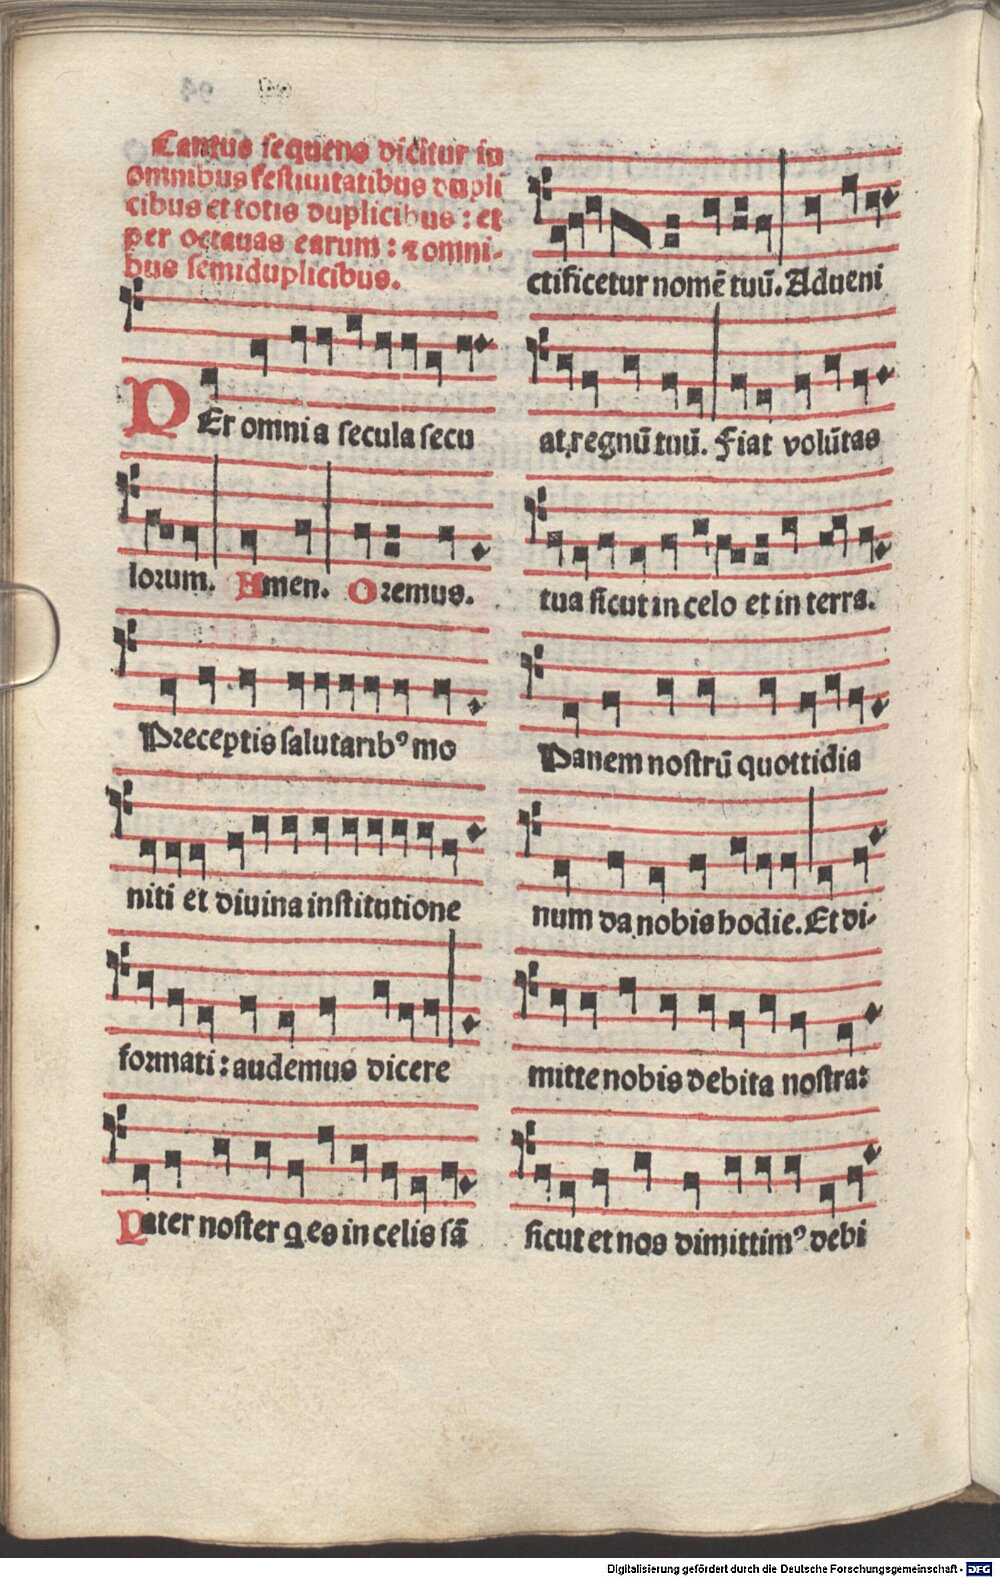 Cantus sequens dicitur in
omnibus festiuitatibus dupli
cibus et totis duplicibus: et
per octauas earum: ⁊ omni-
bus semiduplicibus.
PEr omnia secula secu
lorum. Amen. Oremus.
Preceptis salutarib⁹ mo
niti et diuina institutione
formati: audemus dicere
Pater noster q es in celis sā
ctificetur nomē tuū. Adueni
at regnū tuū. Fiat volūtas
tua sicut in celo et in terra.
Panem nostrū quottidia
num da nobis hodie. Et di-
mitte nobis debita nostra:
sicut et nos dimittim⁹ debi
Digitalisierung gefördert durch die Deutsche Forschungsgemeinschaft - DFG